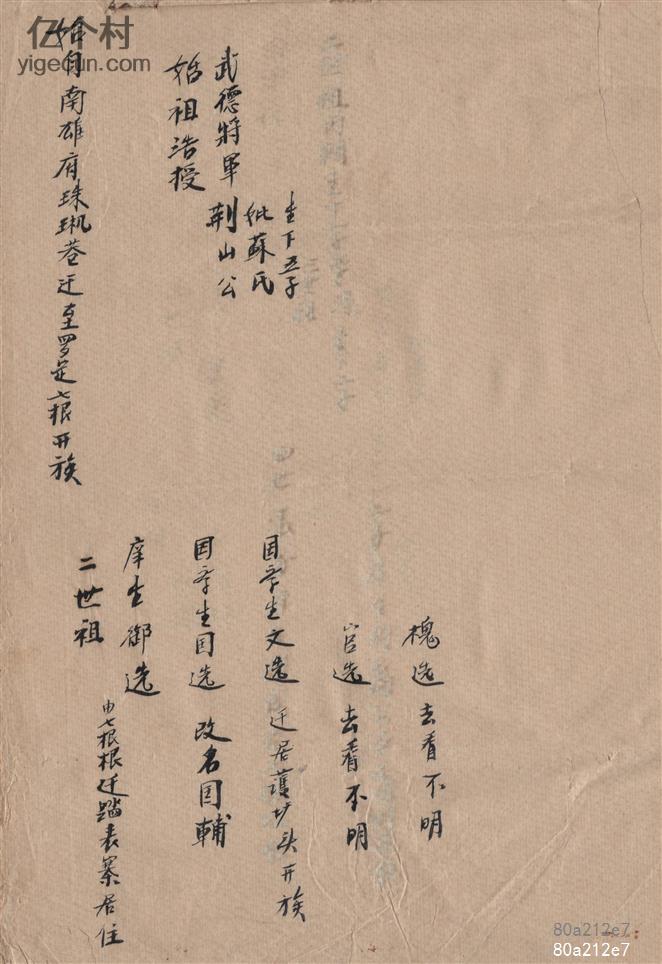 亿个村
yigecun.com
始自南雄府珠玑巷迁至罗定七根开族
始祖浩授
武德將軍 荆山公
妣蘇氏
生下五子
二世祖
由七根根迁踏表寨居住
庠生御选
国学生国选 改名国輔
国学生文选 迁居護圹头开族
官选 去看不明
槐选 去看不明
80a212e7
80a212e7